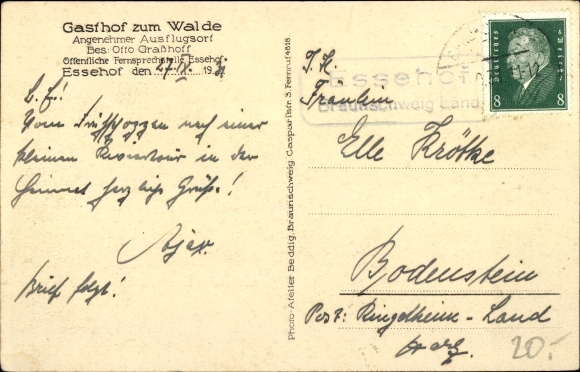 Gasthof zum Walde
Angenehmer Ausflugsort
Bes: Otto Graßhoff
Öffentliche Fernsprechstelle Essehof
Essehof den 27.IV. 1931
L. E!
Vom Frühschoppen nach einer
kleinen Reviertour in der
Heimat herzliche Grüße!
Ajax.
Brief folgt!
Photo-Atelier Beddig, Braunschweig Casparistr. 3. Fernruf 4818
Essehof
Braunschweig Land
Deutsches Reich
8 8
Fräulein
Elle Krötke
Bodenstein
Post: Ringelheim-Land
Harz.
20.-